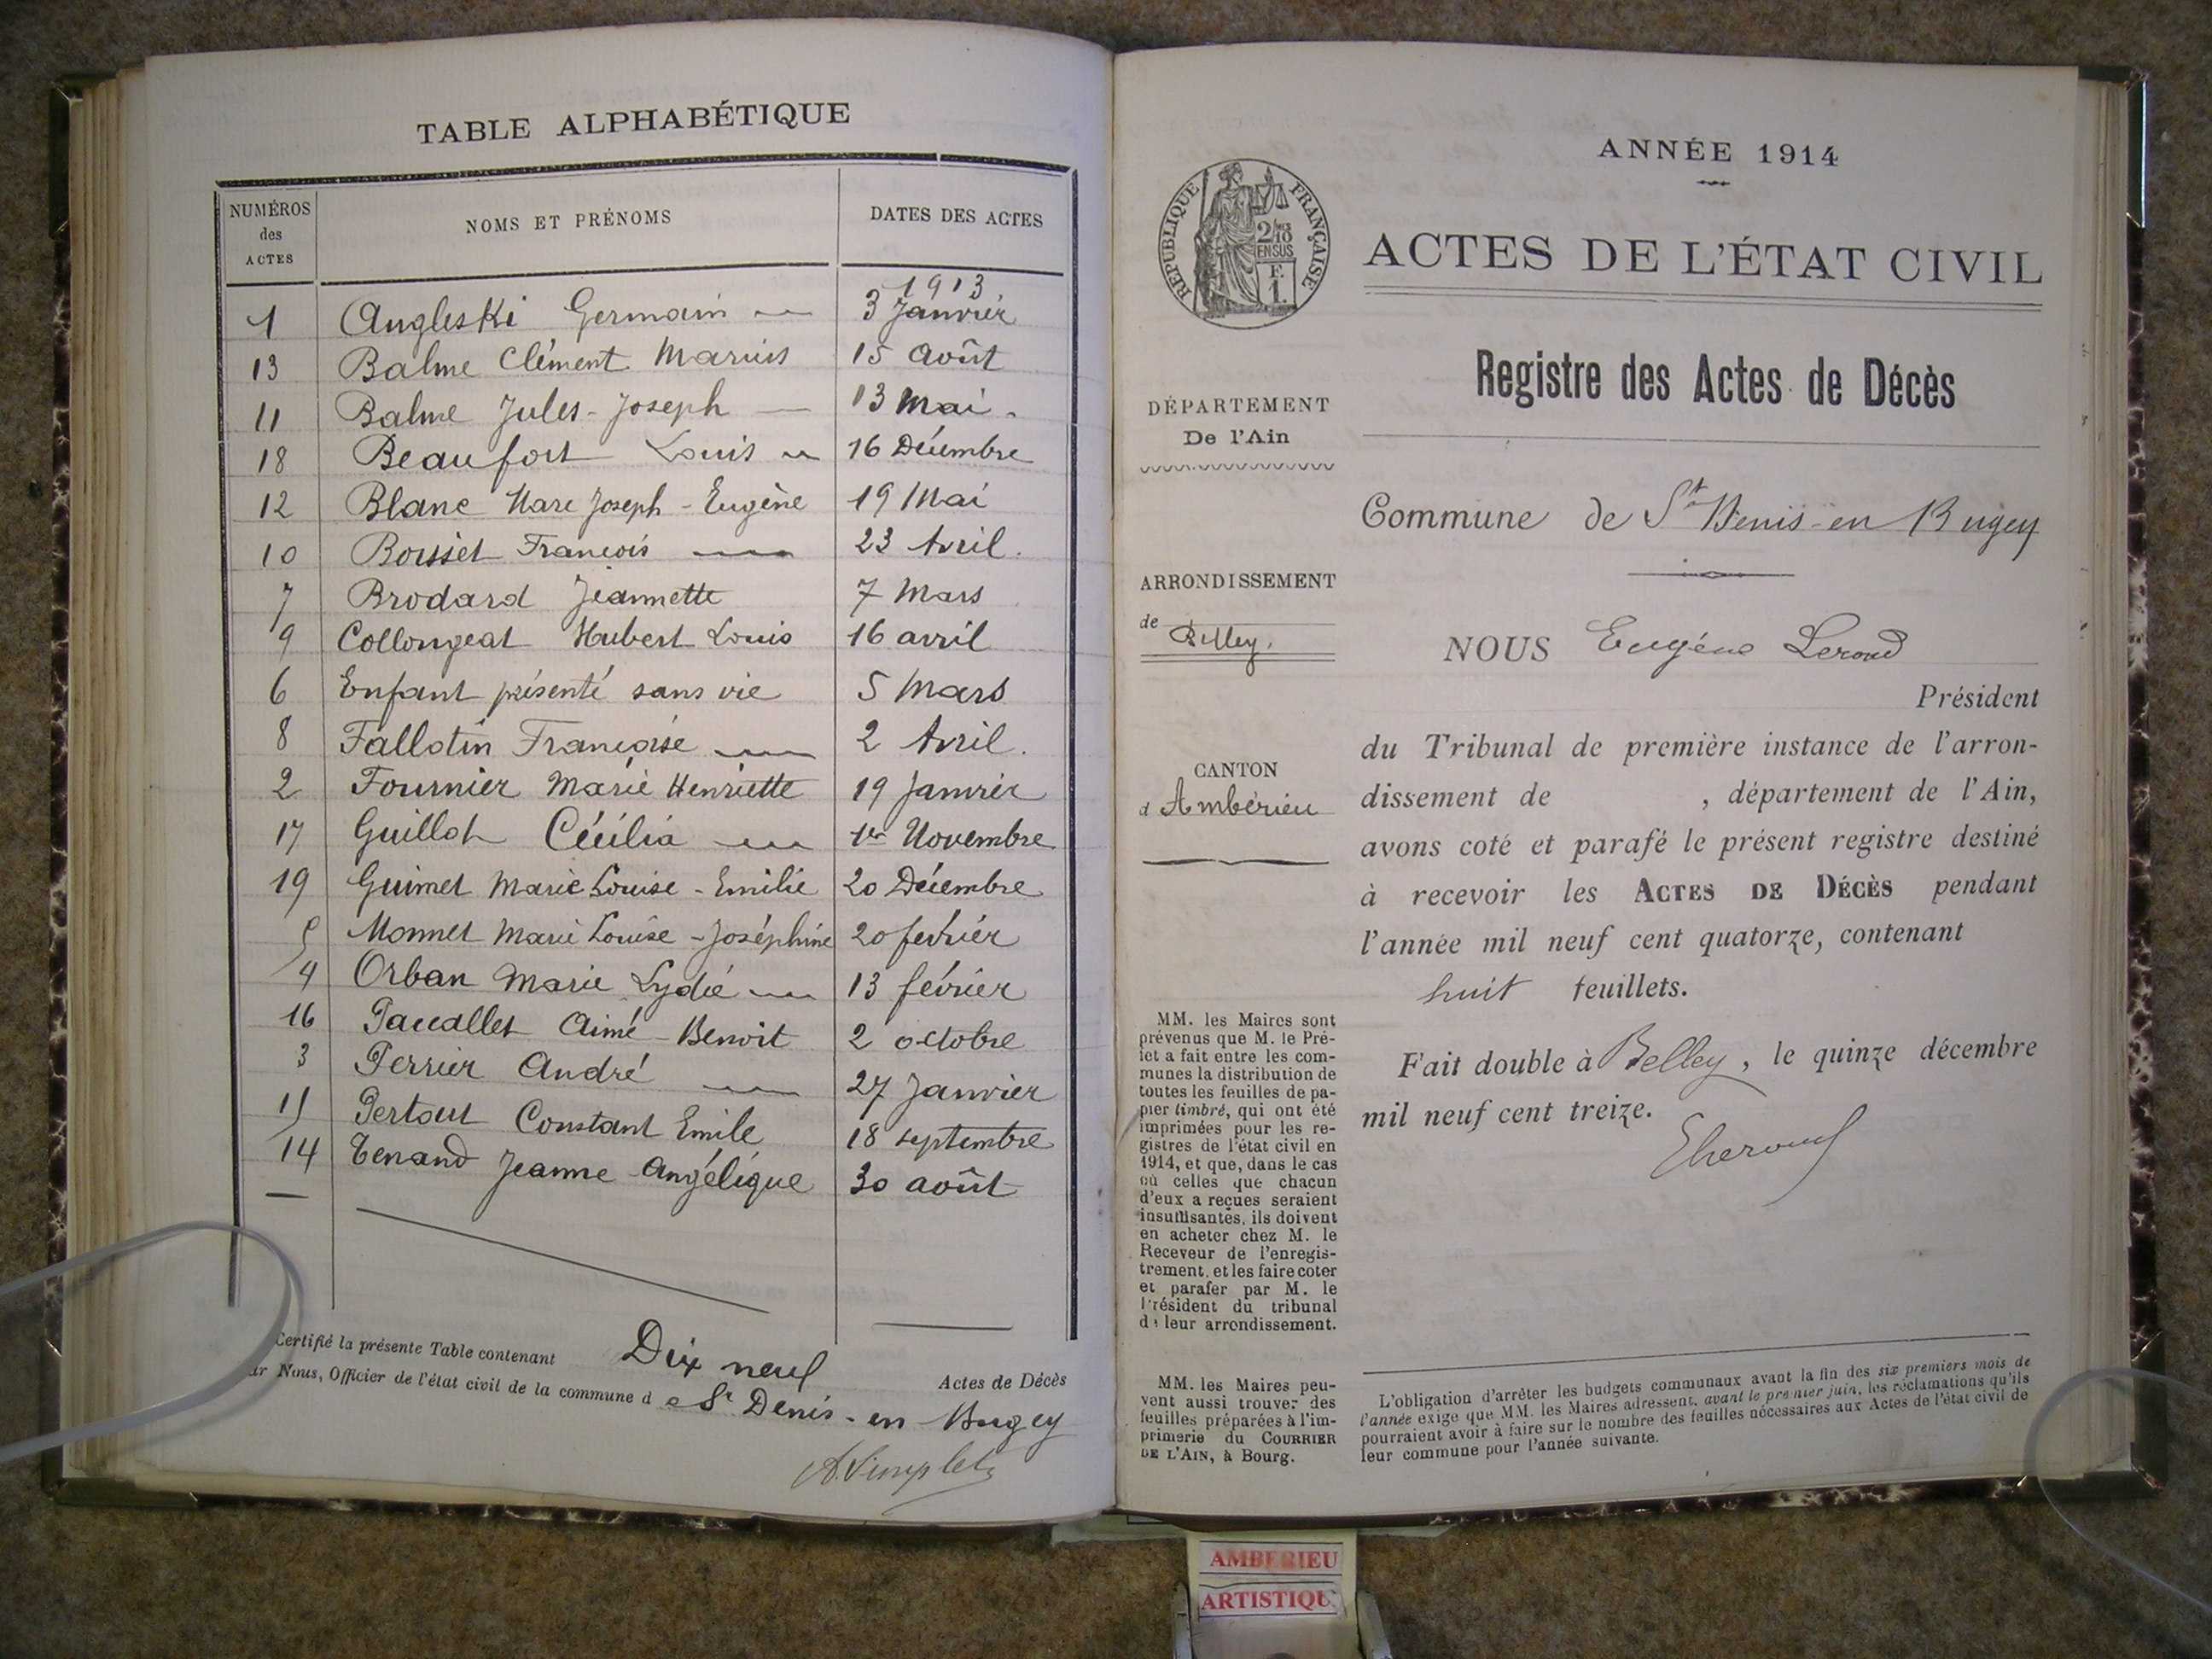 TABLE ALPHABÉTIQUE
NUMÉROS des ACTES NOMS ET PRÉNOMS DATES DES ACTES
1913
1 Angleski Germain 3 Janvier
13 Balme Clément Marius 15 Août
11 Balme Jules-Joseph 13 Mai
18 Beaufort Louis 16 Décembre
12 Blanc Marc Joseph-Eugène 19 Mai
10 Bousset François 23 Avril.
7 Brodard Jeannette 7 Mars
9 Collongeat Hubert Louis 16 avril
6 Enfant présenté sans vie 5 Mars
8 Fallotin Françoise 2 Avril.
2 Fournier Marie Henriette 19 Janvier
17 Guillot Cécilia 1er Novembre
19 Guimet Marie Louise-Emilie 20 Décembre
5 Monnet Marie Louise-Joséphine 20 février
4 Orban Marie Lydie 13 février
16 Paccallet Aimé-Benoit 2 octobre
3 Perrier André 27 Janvier
15 Pertout Constant Emile 18 septembre
14 Tenand Jeanne Angélique 30 août
Certifié la présente Table contenant Dix neuf Actes de Décès
Nous, Officier de l'état civil de la commune de St Denis-en-Bugey
ANNÉE 1914
RÉPUBLIQUE FRANÇAISE
2/10 EN SUS
F. 1.
ACTES DE L'ÉTAT CIVIL
Registre des Actes de Décès
DÉPARTEMENT
De l'Ain
Commune de St Denis-en Bugey
ARRONDISSEMENT
de Belley.
NOUS Eugène
Président
du Tribunal de première instance de l'arron-
dissement de , département de l'Ain,
avons coté et parafé le présent registre destiné
à recevoir les ACTES DE DÉCÈS pendant
l'année mil neuf cent quatorze, contenant
huit feuillets.
Fait double à Belley, le quinze décembre
mil neuf cent treize.
CANTON
d Ambérieu
MM. les Maires sont
prévenus que M. le Pré-
fet a fait entre les com-
munes la distribution de
toutes les feuilles de pa-
pier timbré, qui ont été
imprimées pour les re-
gistres de l'état civil en
1914, et que, dans le cas
où celles que chacun
d'eux a reçues seraient
insuffisantes, ils doivent
en acheter chez M. le
Receveur de l'enregis-
trement, et les faire coter
et parafer par M. le
Président du tribunal
de leur arrondissement.
MM. les Maires peu-
vent aussi trouver des
feuilles préparées à l'im-
primerie du COURRIER
DE L'AIN, à Bourg.
L'obligation d'arrêter les budgets communaux avant la fin des six premiers mois de
l'année exige que MM. les Maires adressent, avant le premier juin, les réclamations qu'ils
pourraient avoir à faire sur le nombre des feuilles nécessaires aux Actes de l'état civil de
leur commune pour l'année suivante.
AMBERIEU
ARTISTIQU